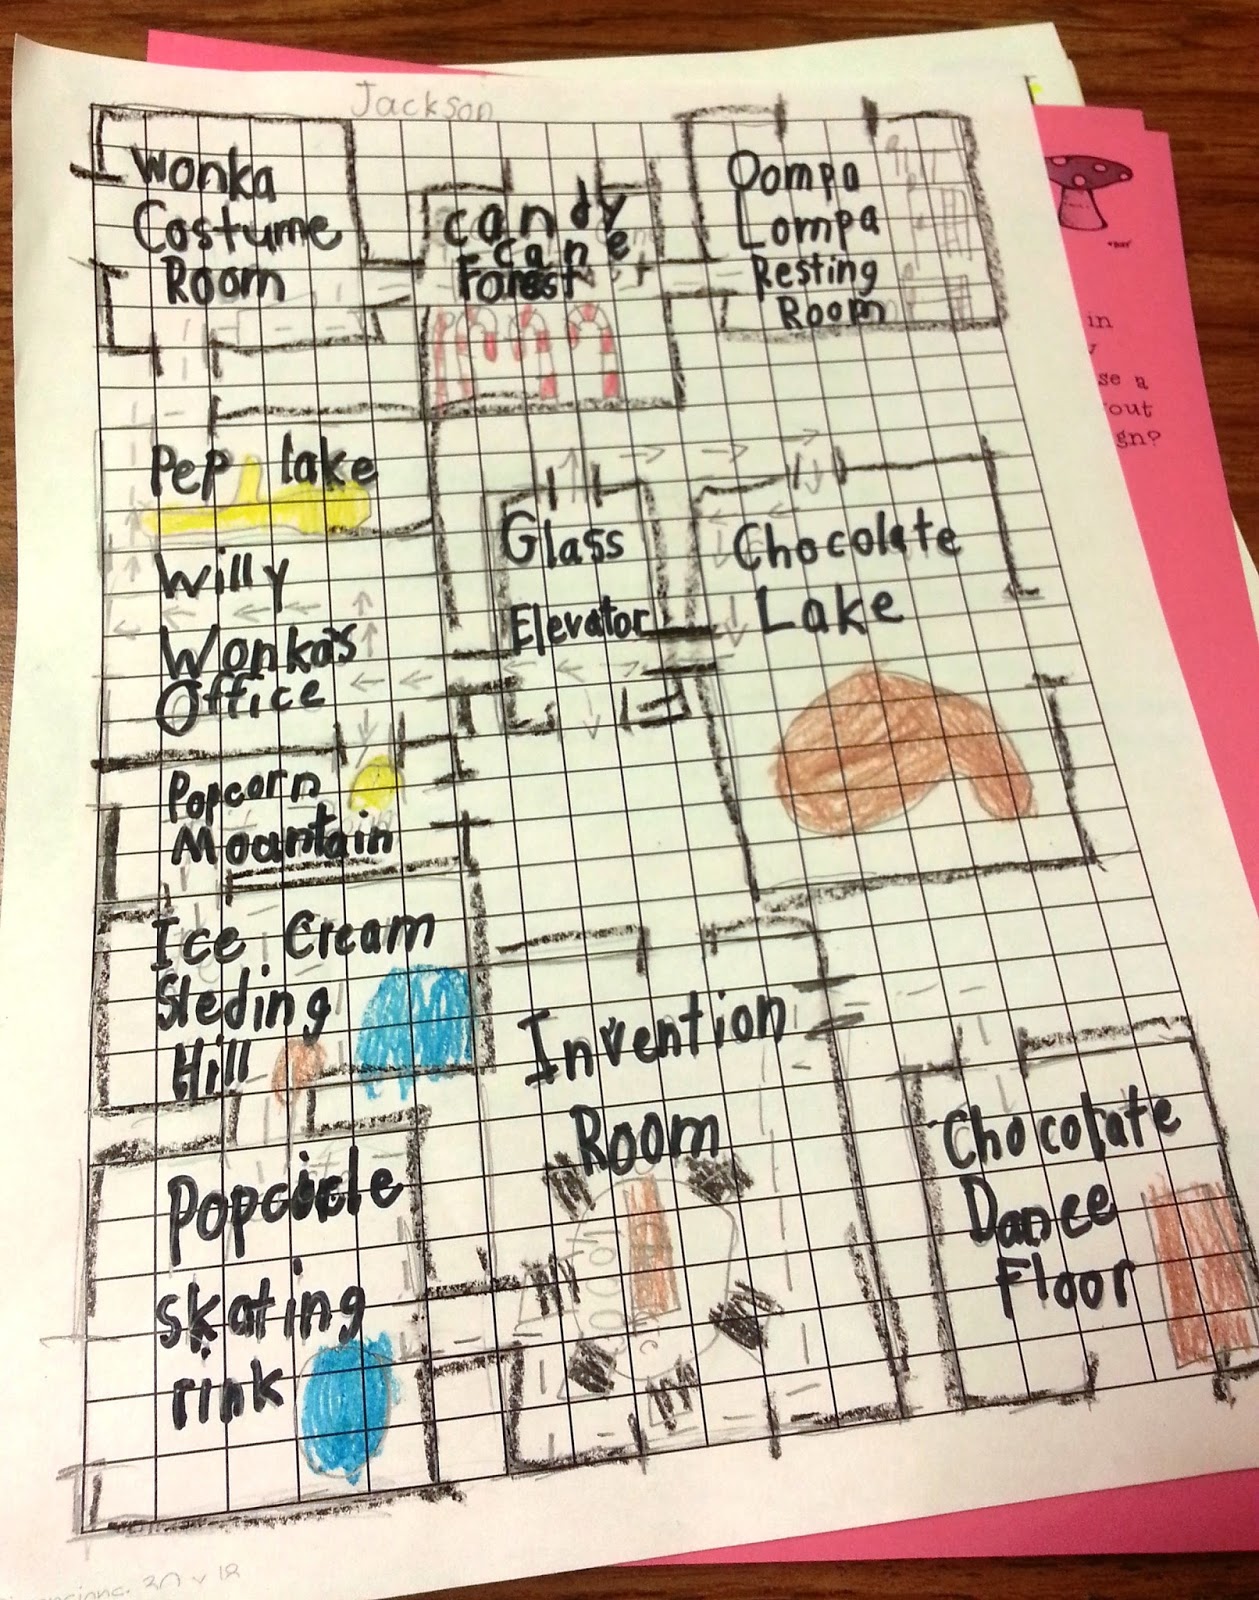 Jackson
Wonka
Costume
Room
Candy
cane
Forest
Oompa
Lompa
Resting
Room
in
se a
out
gn?
Pep lake
Willy
Wonka's
Office
Glass
Elevator
Chocolate
Lake
Popcorn
Mountain
Ice Cream
Sleding
Hill
Invention
Room
Chocolate
Dance
Floor
Popcicle
skating
rink